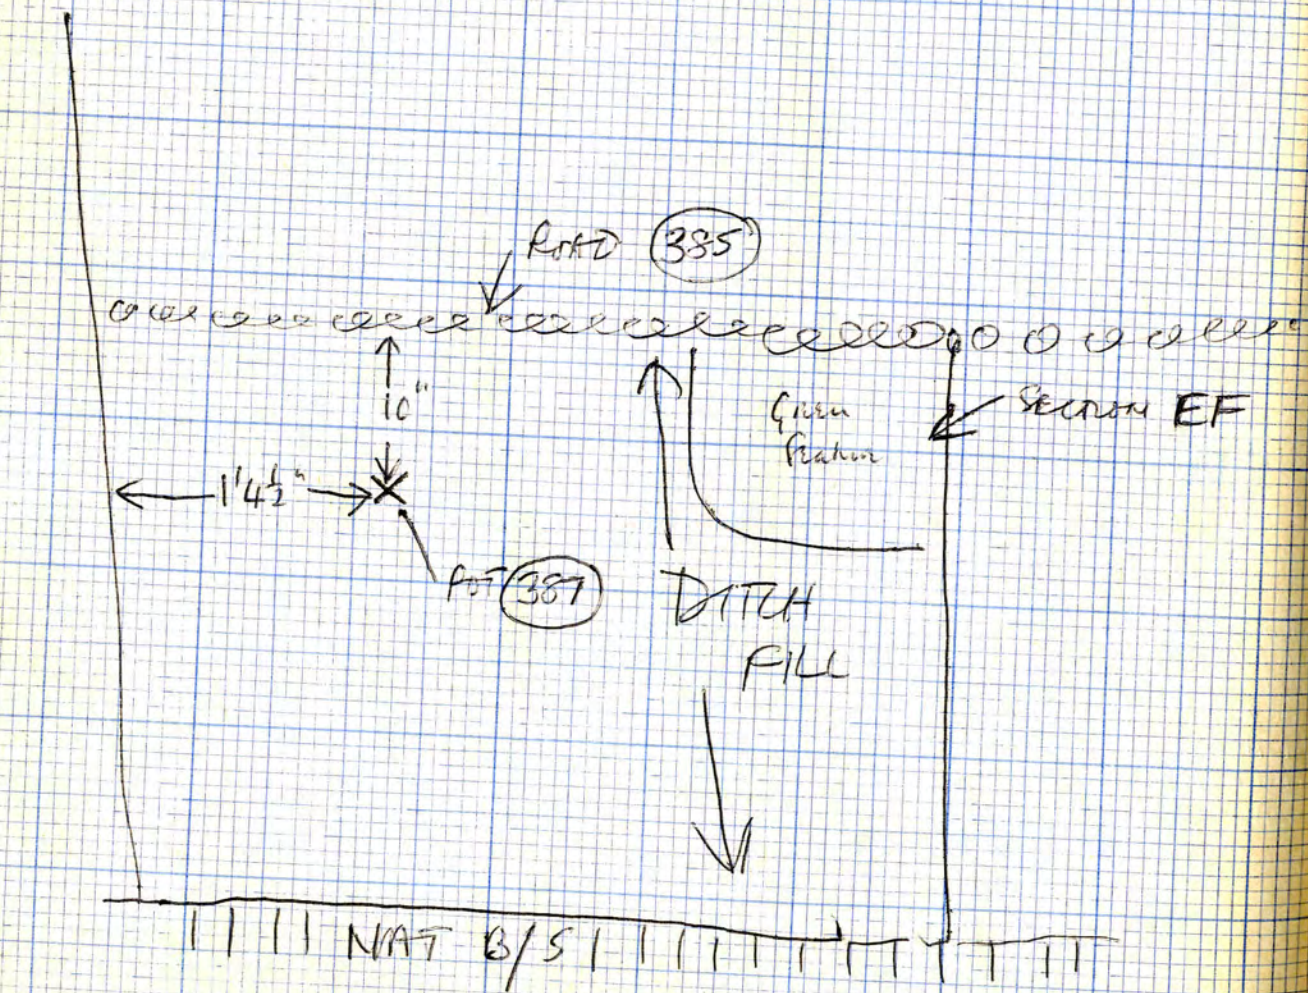 ROAD 385
10"
Green
Feature
SECTION EF
1'4½"
POT 387
DITCH
FILL
NAT B/S